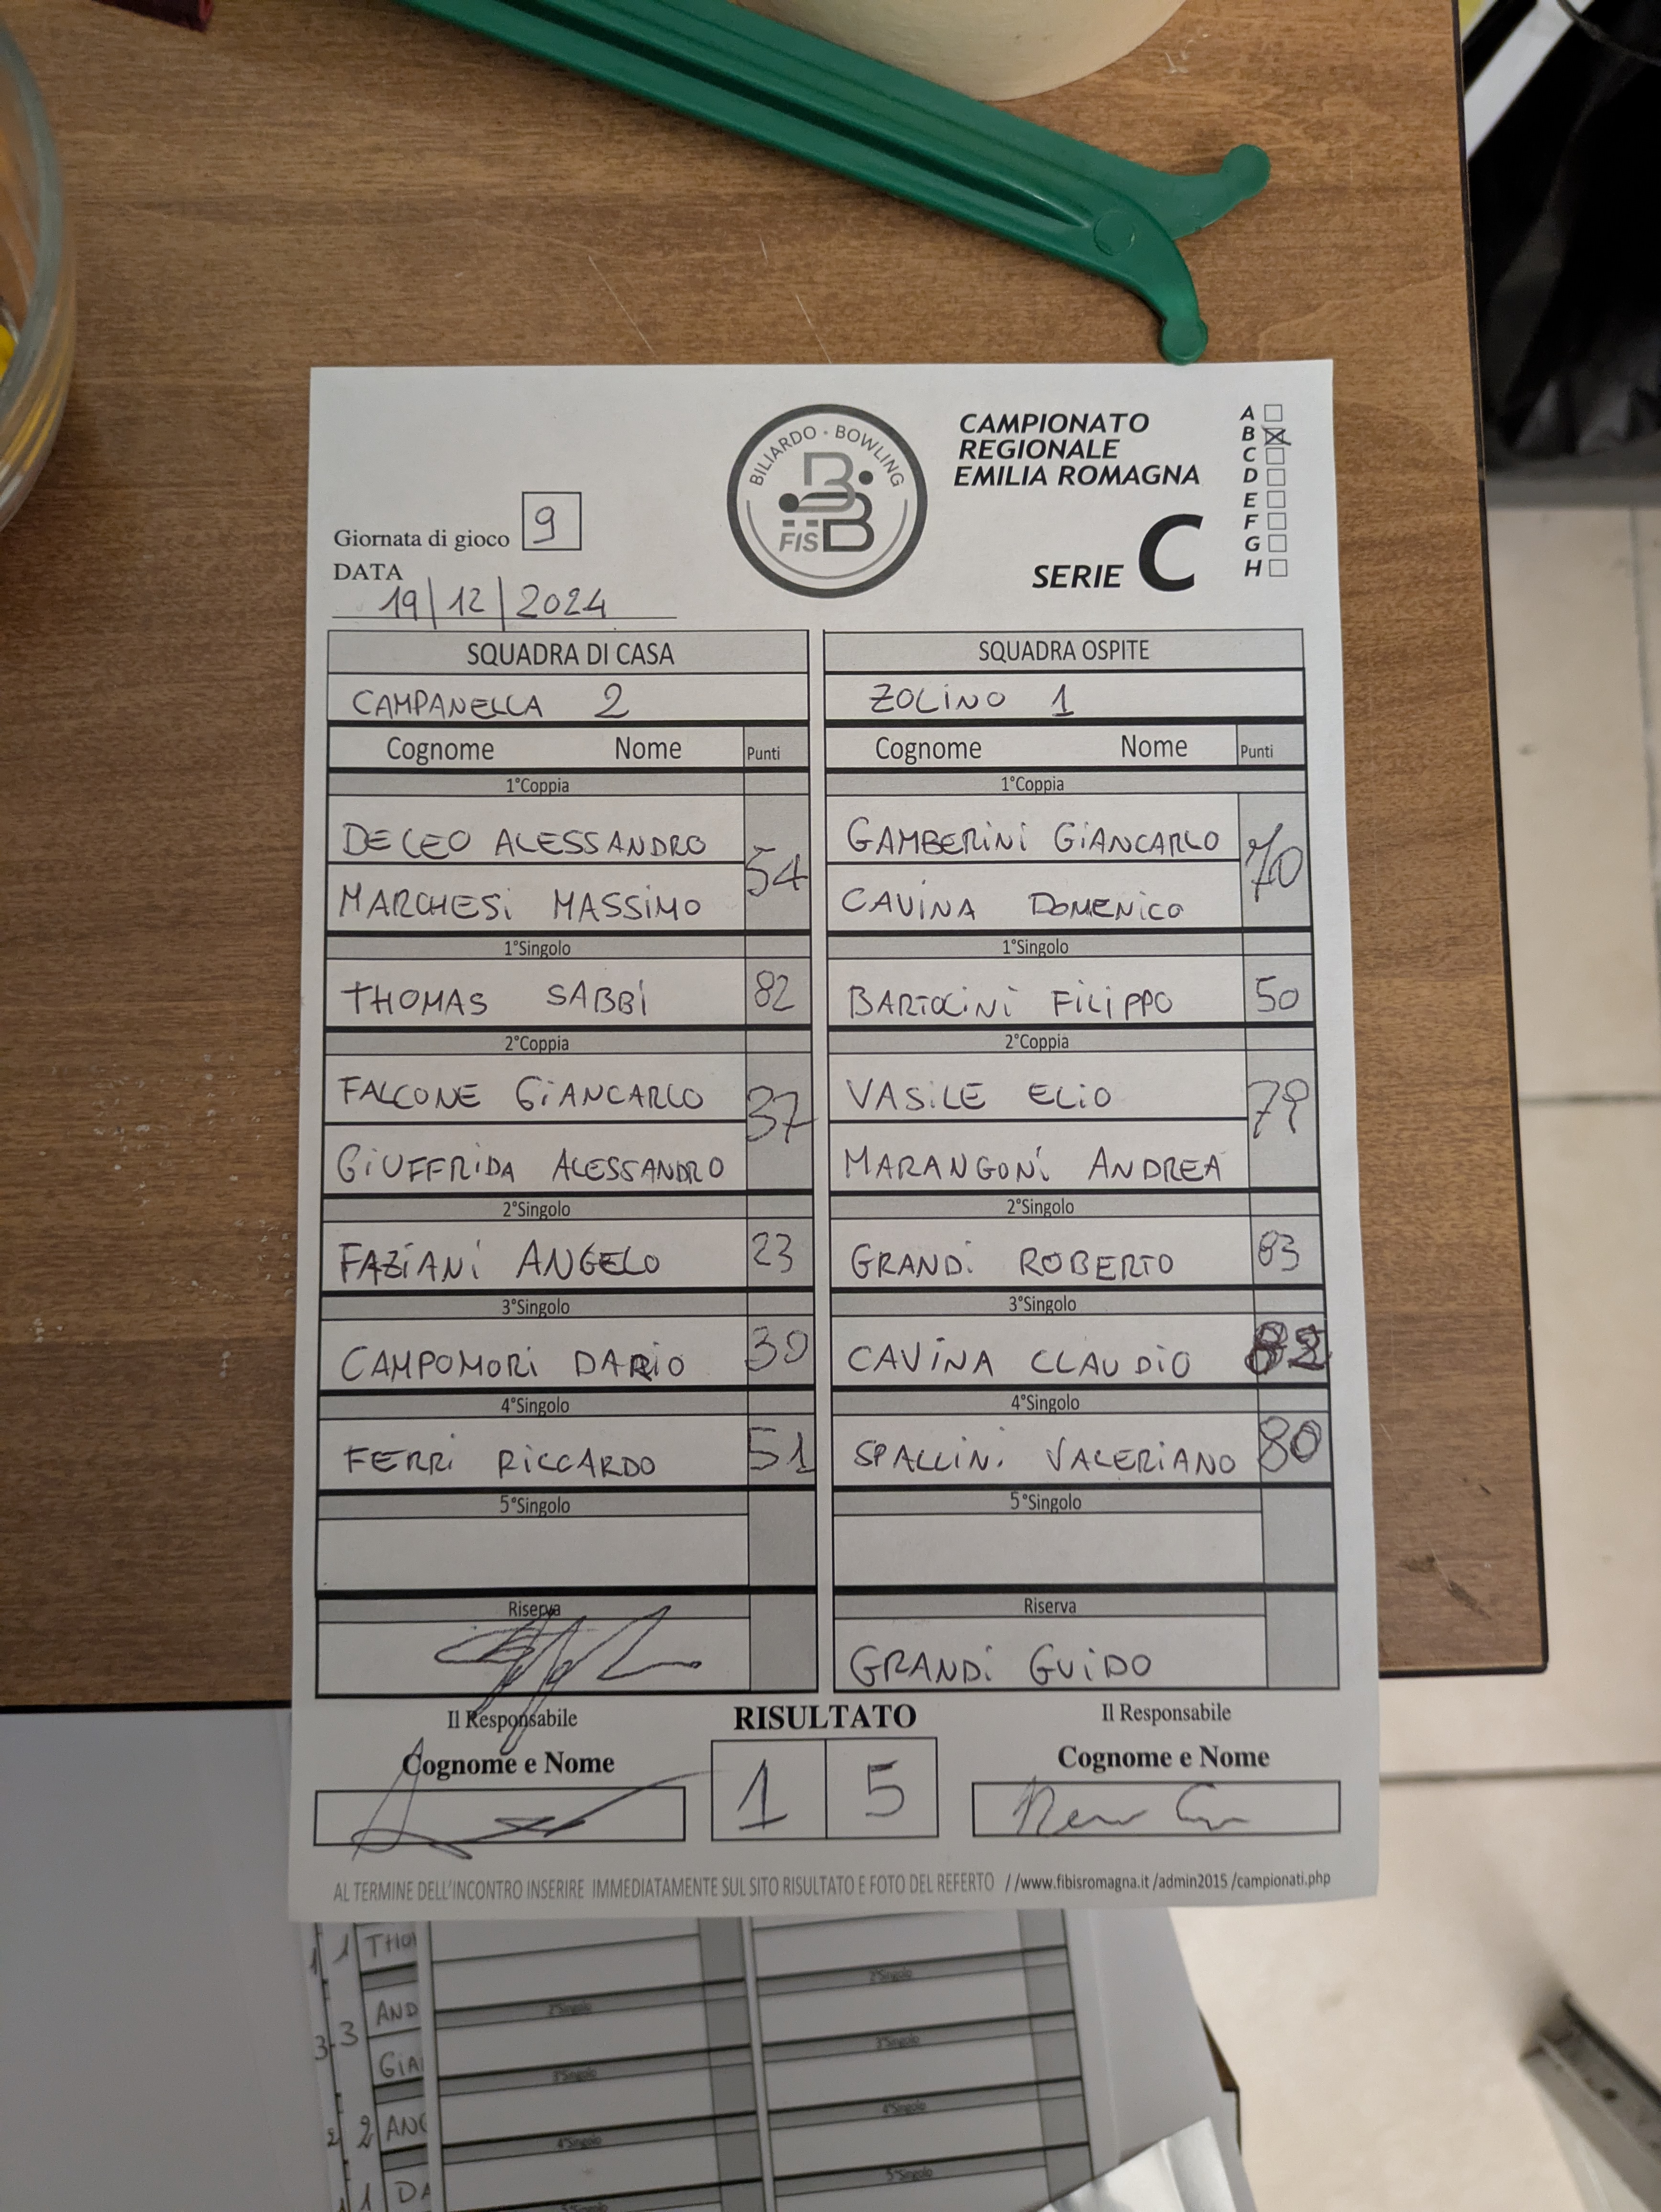 CAMPIONATO
REGIONALE
EMILIA ROMAGNA
SERIE C
A
B
C
D
E
F
G
H
BILIARDO · BOWLING
FISBB
Giornata di gioco 9
DATA
19/12/2024
SQUADRA DI CASA
CAMPANELLA 2
Cognome Nome Punti
1°Coppia
DE LEO ALESSANDRO
54
MARCHESI MASSIMO
1°Singolo
THOMAS SABBI 82
2°Coppia
FALCONE GIANCARLO
37
GIUFFRIDA ALESSANDRO
2°Singolo
FAZIANI ANGELO 23
3°Singolo
CAMPOMORI DARIO 30
4°Singolo
FERRI RICCARDO 51
5°Singolo
Riserva
Il Responsabile
Cognome e Nome
SQUADRA OSPITE
ZOLINO 1
Cognome Nome Punti
1°Coppia
GAMBERINI GIANCARLO
70
CAVINA DOMENICO
1°Singolo
BARTOLINI FILIPPO 50
2°Coppia
VASILE ELIO
79
MARANGONI ANDREA
2°Singolo
GRANDI ROBERTO 83
3°Singolo
CAVINA CLAUDIO 82
4°Singolo
SPALLINI VALERIANO 80
5°Singolo
Riserva
GRANDI GUIDO
Il Responsabile
Cognome e Nome
RISULTATO
1 5
AL TERMINE DELL'INCONTRO INSERIRE IMMEDIATAMENTE SUL SITO RISULTATO E FOTO DEL REFERTO //www.fibisromagna.it /admin2015 /campionati.php
1 1 THO
AND
3-3
GIA
2 2 ANG
1 1 DA
2°Singolo
3°Singolo
4°Singolo
5°Singolo
2°Singolo
3°Singolo
4°Singolo
5°Singolo